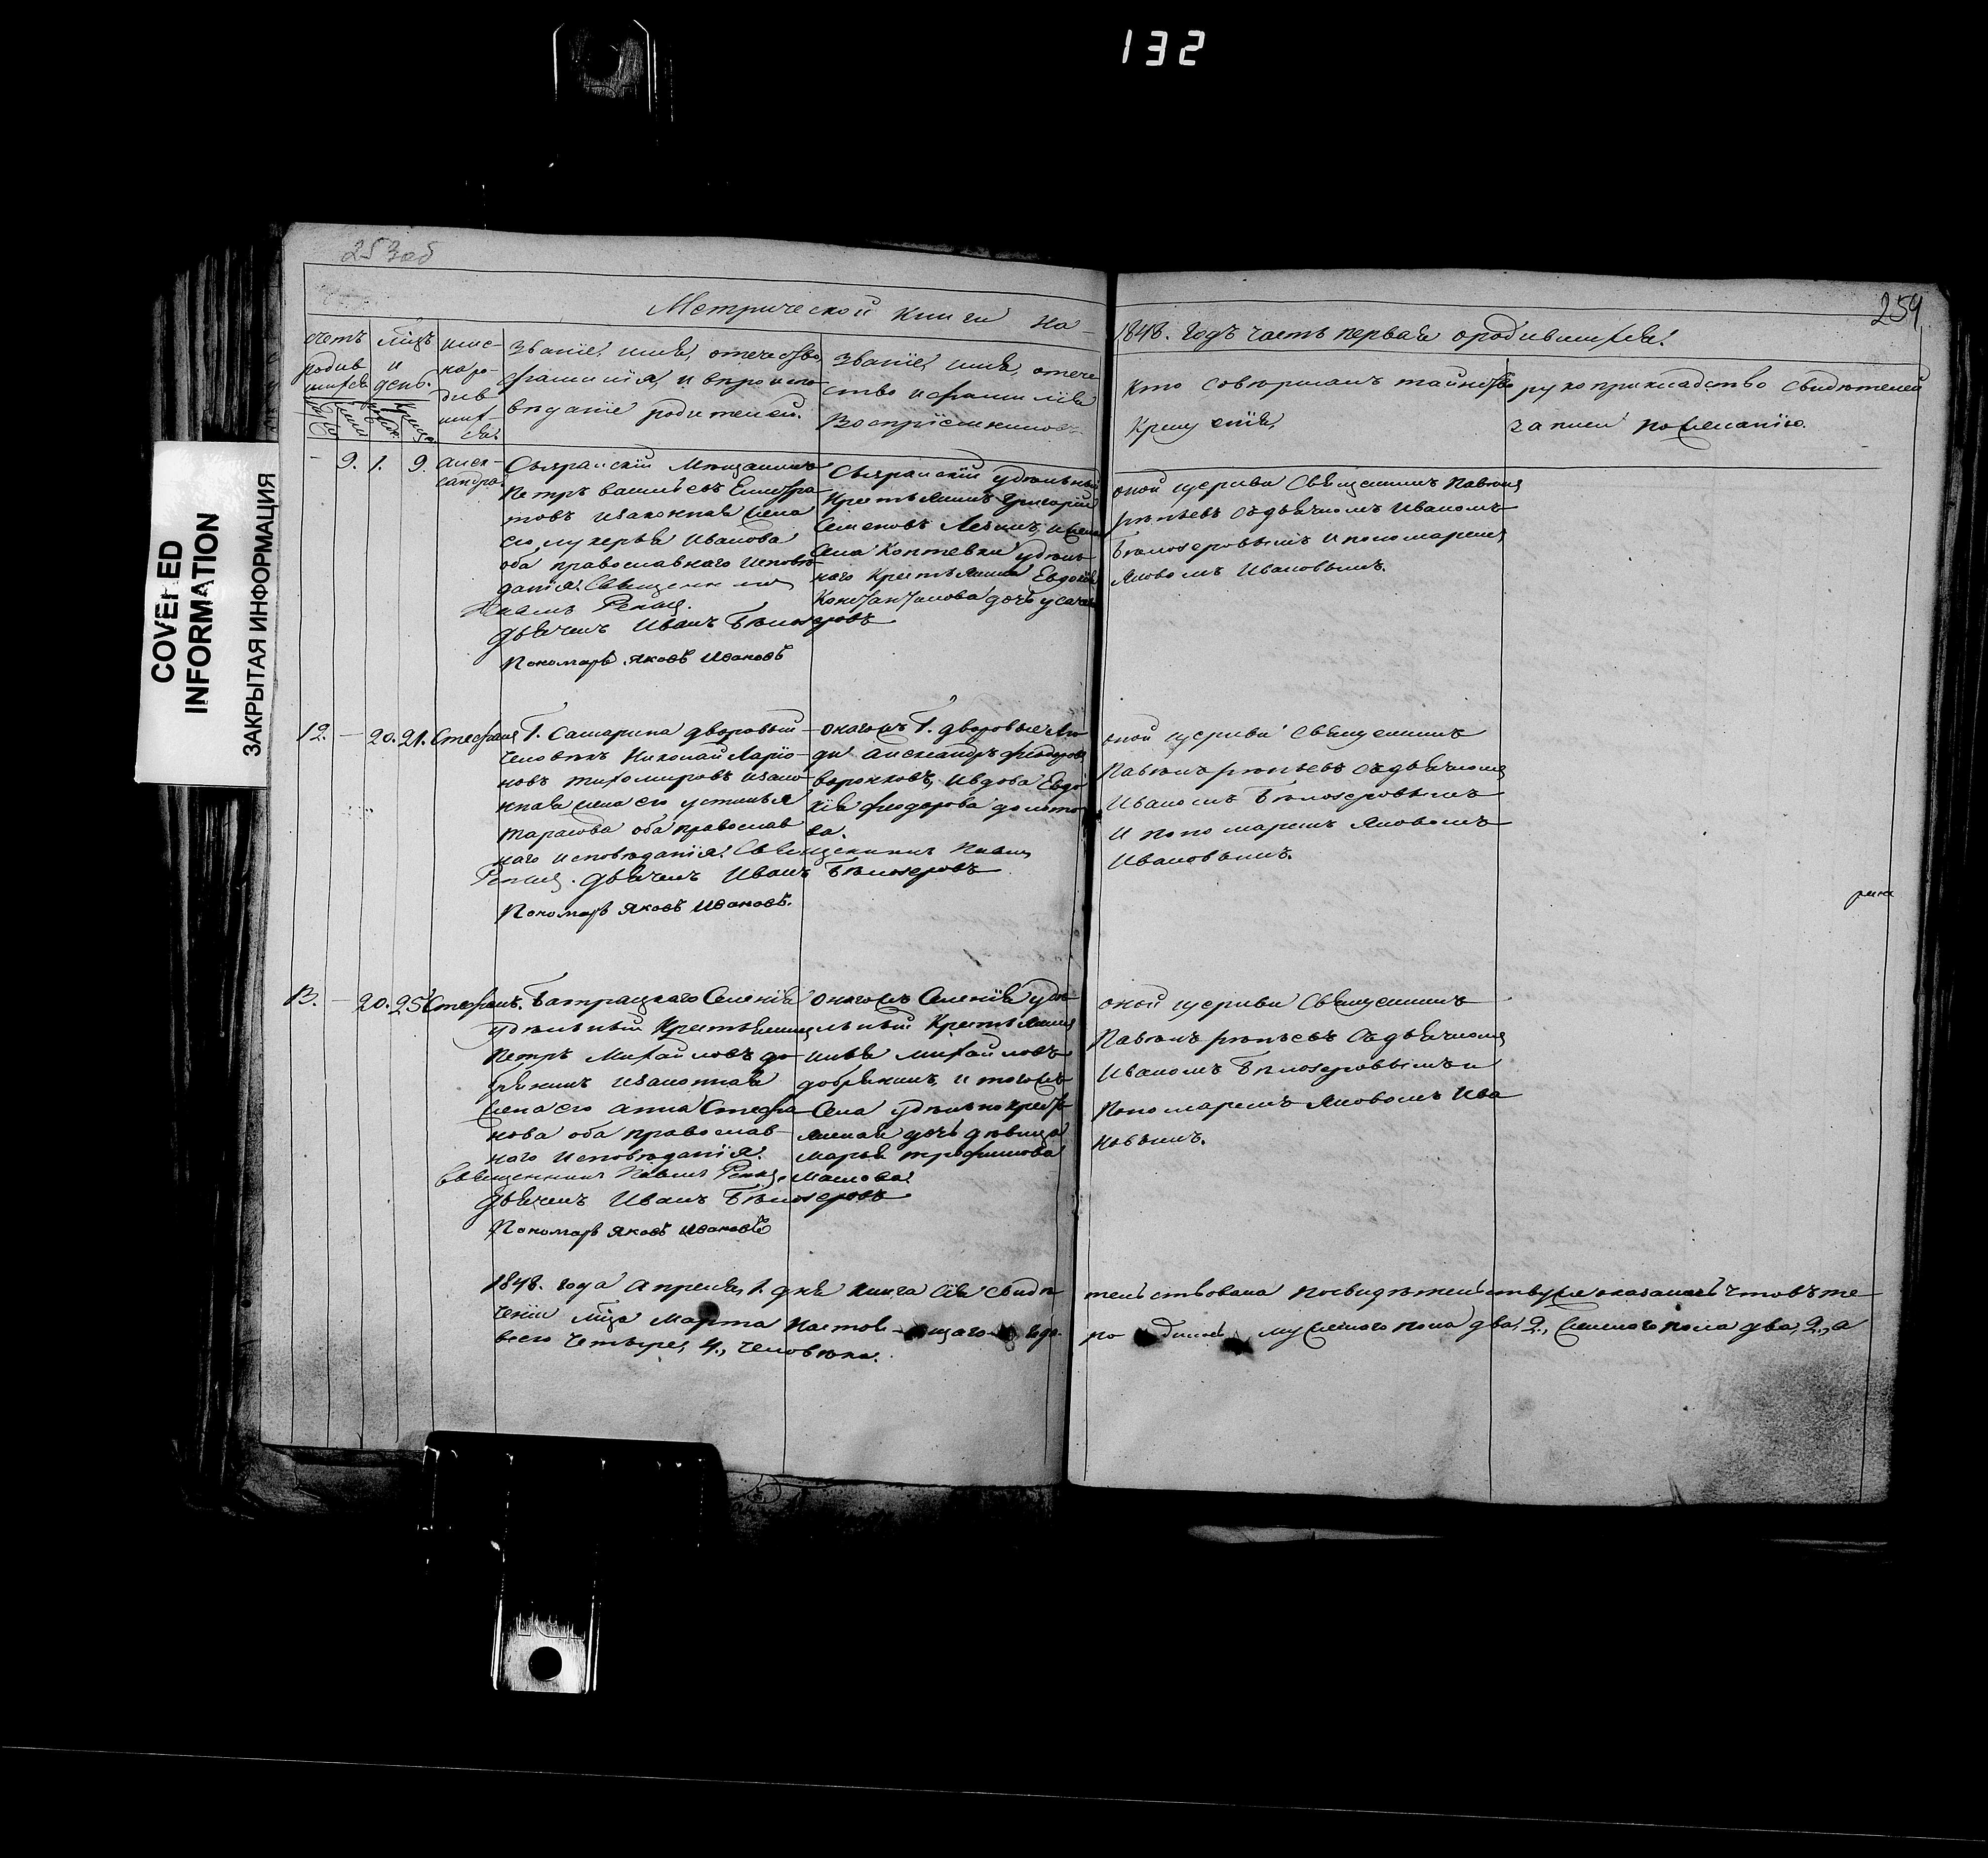 132
COVERED
INFORMATION
ЗАКРЫТАЯ ИНФОРМАЦИЯ
253об
254
Метрической книги на
1848. годъ часть первая о родившихся.
счетъ
родив
шихся
мѣсѣцъ
и
день.
имѣ-
на ро-
див
ших
ся.
званіе, имя, отечество,
фамилія, и вѣроиспо-
вѣданіе родителей.
званіе, имя, отече
ство и фамилія
Воспріемниковъ
Кто совершалъ таинство
Крещенія,
рукоприкладство свидѣтелей
записи по желанію.
- 9. 1. 9. Алек-
сандра.
Сызранскій Мѣщанинъ
Петръ Васильевъ Елистра
товъ и законная жена
его Лукерья Иванова
оба православнаго исповѣ
данія. Священник
Павелъ Репьев.
Дьячекъ Иванъ Бѣлозеровъ
Пономарь Яковъ Ивановъ
Сызранскій удѣльный
Крестьянинъ Григорій
Семеновъ
села Коптевки удѣль
наго Крестьянина Евдокія
Константинова дочь
оной церкви Священникъ Павелъ
Рѣпьевъ съ дьячкомъ Иваномъ
Бѣлозеровымъ и пономаремъ
Яковомъ Ивановымъ.
12. — 20. 21. Стефанъ
Г. Самарина дворовый
человѣкъ Николай Ларіо-
новъ Тихомировъ и зако-
нная жена его Устинья
Тарасова оба православ
наго исповѣданія. Священникъ Павелъ
Репьев. Дьячекъ Иванъ Бѣлозеровъ
Пономарь Яковъ Ивановъ.
онагожъ Г. дворовые лю
ди Александръ Феодоровъ
Воронковъ, и вдова Евдо
кія Феодорова
ва.
оной церкви Священникъ
Павелъ Рѣпьевъ съ дьячкомъ
Иваномъ Бѣлозеровымъ
и пономаремъ Яковомъ
Ивановымъ.
13. — 20. 25. Стефанъ.
Батрацкаго Селенія
удѣльный Крестьянинъ
Петръ Михайловъ до-
брянинъ и законная
жена его Анна Стефа
нова оба православ-
наго исповѣданія.
Священникъ Павелъ Репьев
Дьячекъ Иванъ Бѣлозеровъ
Пономарь Яковъ Ивановъ
онагожъ Селенія удѣ-
льный Крестьянинъ
Илья Михайловъ
добрянинъ, и тогожъ
Села
дочь дѣвица
Марья Трофимова
оной церкви Священникъ
Павелъ Рѣпьевъ съ дьячкомъ
Иваномъ Бѣлозеровымъ и
Пономаремъ Яковомъ Ива
новымъ.
1848. года Апреля, 1. дня книга сія свидѣ
тельствована по свидѣтельству оказалось что въ те
ченіи Мѣца Марта настоящаго года
мужескаго пола два, 2., женскаго пола два, 2., а
всего четыре, 4., человѣка.